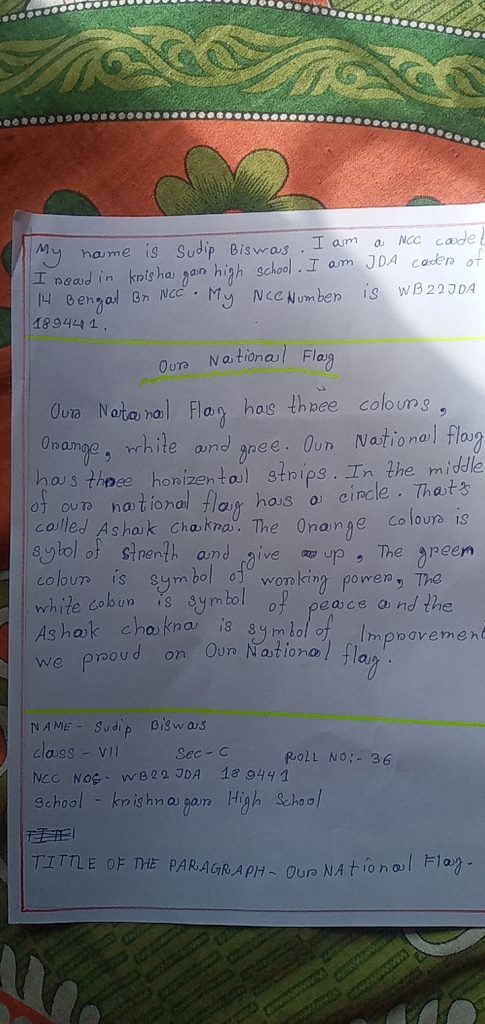 My name is Sudip Biswas. I am a NCC cadet
I read in krisha gar high school. I am JDA caden of
14 Bengal Bn NCC. My NCC Number is WB22JDA
189441.
Our National Flag
Our Natanal Flag has three colours,
Orange, white and gree. Our National flag
has three horizental strips. In the middle
of our national flag has a circle. That's
called Ashak chakra. The Orange colour is
sybol of strenth and give up, The green
colour is symbol of working power, The
white colour is symbol of peace and the
Ashok chakra is symbol of Improvement
we proud on Our National flag.
NAME - Sudip Biswas
class - VII Sec - C ROLL NO:- 36
NCC NOS- WB22 JDA 189441
School - krishnagar High School
TITTLE OF THE PARAGRAPH - Our NAtional Flag.